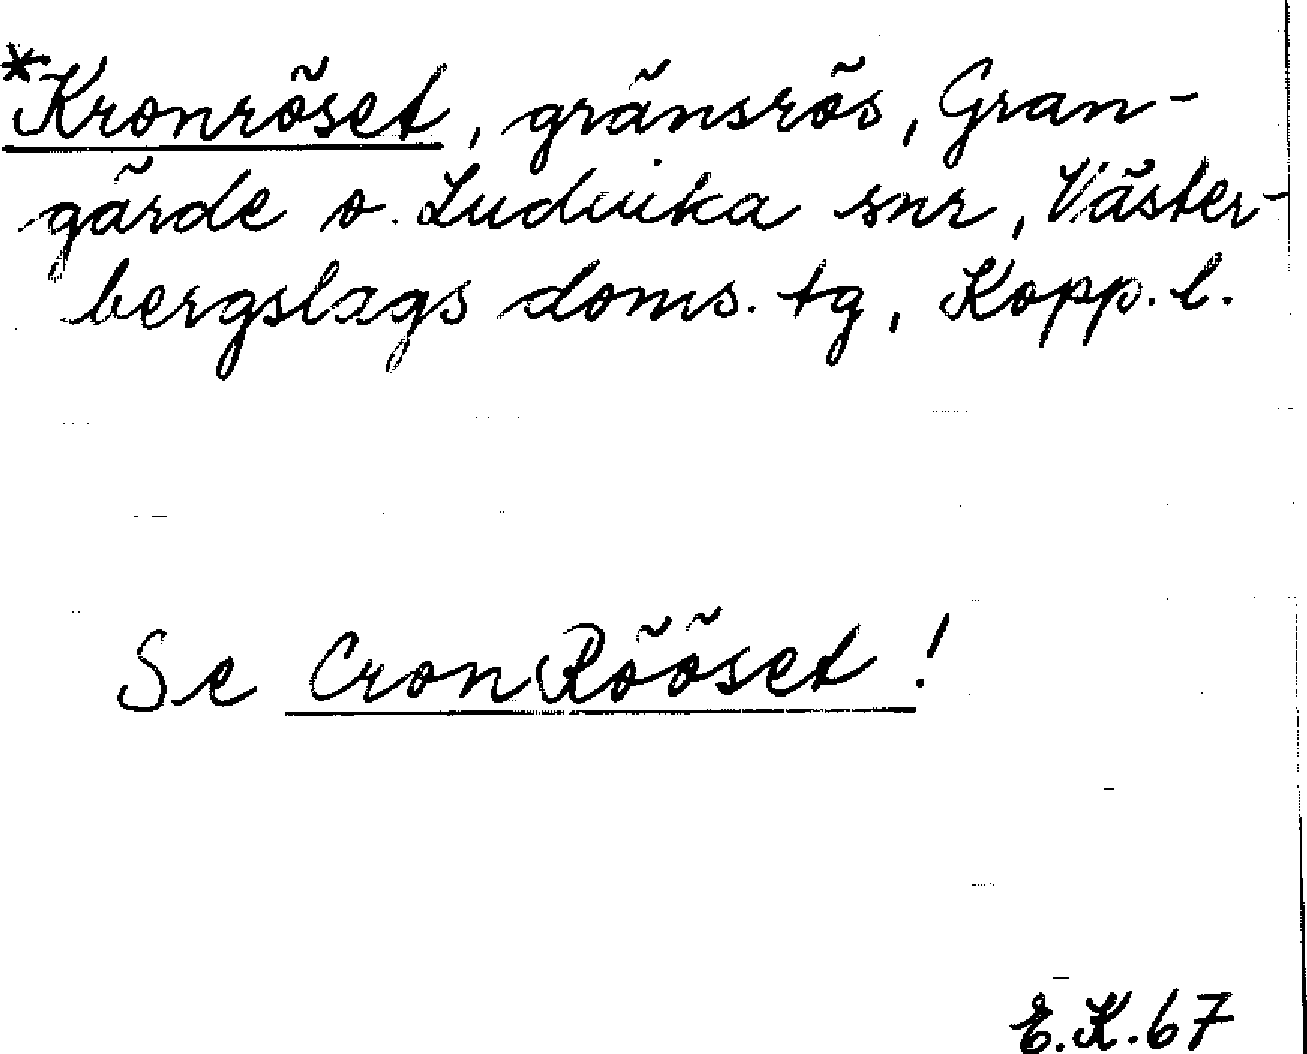 *Kronröset, gränsrös, Gran-
gärde o. Ludvika snr, Väster-
bergslags doms. tg, Kopp. l.
Se CronRööset!
E.K. 67